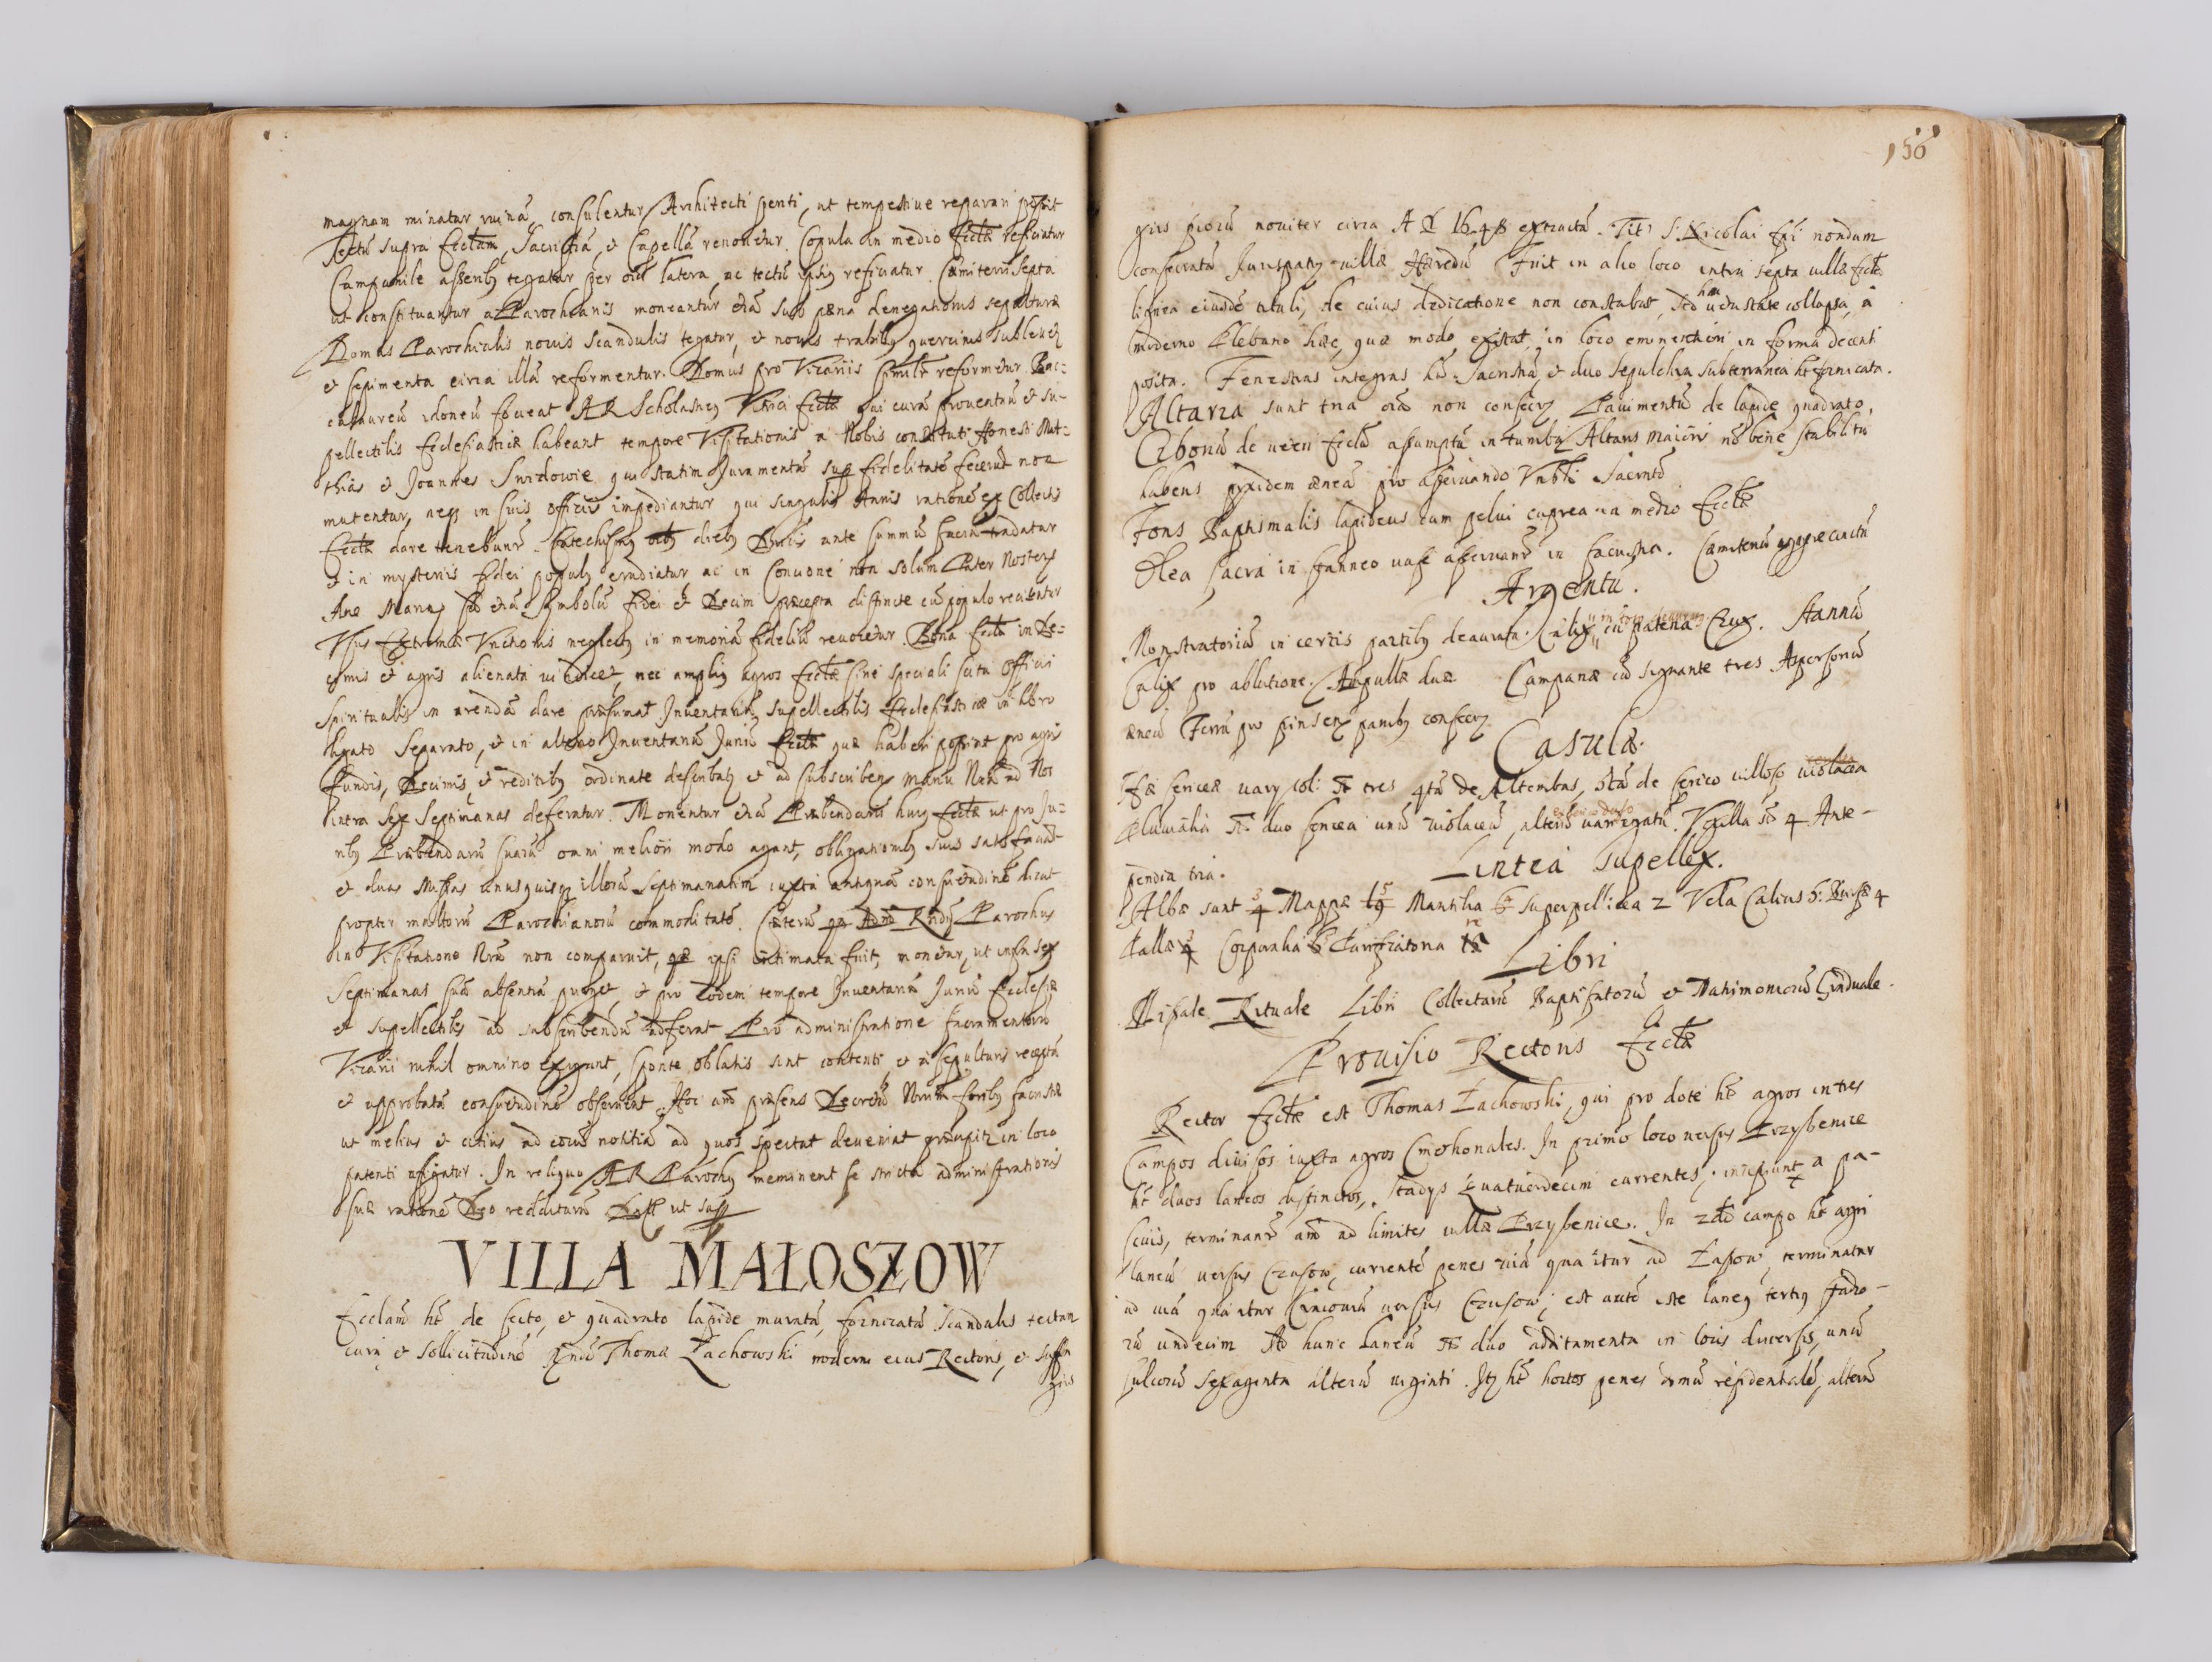 magnam minatur ruinã, consulentur Architecti periti, ut tempestiue reparari possit
Tectũ supra Eccłam, Sacristiã, et Capellã renouetur. Copula in medio Eccłæ reficiatur
Campanile asserib9 tegatur per oĩa latera, ac tectũ ipsi9 reficiatur. Cæmiterii septa
ut constituantur a Parochianis moneantur etiã sub pæna denegationis sepulturæ
Domus Parochialis nouis Scandulis tegatur, et nouis trabib9 quercinis subleuet
et sepimenta circa illã reformentur. Domus pro Vicariis similr reformetur. Bac:
calaureũ idoneũ foueat AR Scholasticus Vitrici Eccłæ qui curã prouentuũ et su-
pellectilis Ecclesiasticæ habeant tempore Visitationis a Nobis constituti Honesti Mat-
thias et Joannes qui statim Juramentũ sup fidelitate fecerũt non
mutentur, neq3 in suis officiis impediantur qui singulis Annis rationẽ ex Collectis
Eccłæ dare tenebunt. Catechism9 oib9 dieb9 Dnicis ante summũ sacrũ tradatur
et in mysteriis fidei popul9 erudiatur, ac in Concione non solum Pater Noster
Aue Maria, sed etiã Symbolũ fidei et Decem præcepta distincte cũ populo recitentur
Vsus Extremæ Vnctionis neglect9 in memoriã fideliũ reuocetur. Bona Eccłæ in De-
cimis et agris alienata uindicet, nec ampli9 agros Eccłæ sine speciali scitu Officii
Spiritualis in arendã dare præsumat Inventariũ supellectilis Ecclesiasticæ in libro
ligato separato, et in altero Inventariũ Juriũ Eccłæ quæ haberi possint pro agris
fundis, Decimis, et reditib9 ordinate describat et ad subscriben manu Nrã ad Nos
intra sex Septimanas deferatur. Monentur etiã Præbendarii hui9 Eccłæ ut pro Ju-
rib9 Præbendarũ suarũ omni meliori modo agant, obligationib9 suis satisfaciãt
et duas Missas unusquisq3 illorũ septimanatim iuxta antiquã consuetudinẽ dicat
propter maiorẽ Parochianorũ commoditatẽ. Cæterũ qa Adm Rndus Parochus
in Visitatione Nrã non comparuit, quæ ipsi intimata fuit, monetur, ut infra sex
Septimanas suã absentiã purget, et pro eodem tempore Inventariũ Juriũ Ecclesiæ
et supellectilis ad subscribendũ adferat Pro administratione Sacramentorũ
Vicarii nihil omnino exigant, sponte oblatis sint contenti, et in sepulturis receptã
et approbatã consuetudinẽ obseruent. Hoc aut præsens Decretũ Nrum forib9 sacristiæ
ut melius et citius ad eorũ notitiã ad quos spectat deueniat præcipit in loco
patenti affigatur. In reliquo AR Paroch9 meminerit se strictã administrationis
suæ rationẽ Deo redditurũ Datt ut sup
VILLA MAŁOSZOW
Ecclam ht de secto, et quadrato lapide muratã, fornicatã Scandulis tectam
curã et sollicitudine Rndi Thomæ Łachowski moderni eius Rectoris, et suffra
giis
156
giis piorũ nouiter circa A D 1648 extructã. Tit: S. Nicolai Epi nondum
consecratã Jurispat9 uillæ Hæredũ Fuit in alio loco intra septa uillæ Eccła
lignea eiusdẽ tituli, de cuius dedicatione non constabat, sed uetustate collapsa, a
moderno Plebano hæc, quæ modo existat, in loco eminentiori in forma decenti
posita. Fenestras integras ht Sacristiã, et duo Sepulchra subterranea ht fornicata.
Altaria sunt tria oĩa non consecr Pauimentũ de lapide quadrato,
Ciboriũ de ueteri Eccłã assumptũ in tumba Altaris maioris nõ bene stabilitũ
habens pyxidem æneã pro asseruando Vnbli Sacrmto
Fons Baptismalis lapideus cum pelui cuprea in medio Eccłæ
Olea sacra in stanneo uase asseruant in sacristia. Cæmiteriũ
Argentũ.
Monstratoriũ in certis partib9 deaurata. Calix, cũ patena Crux. Stanneũ
Calix pro ablutione. Ampullæ duæ Campanæ cũ signante tres Aspersoriũ
æneũ Ferrũ pro pinsen panib9 consecr
Casulæ.
Hæ sericeæ uary col: st tres 4ta de Altembas, 5ta de serico uilloso uiolacea
Pluuialia st duo sericea unũ uiolaceũ, alterũ uariegatũ. Vexilla st 4 Ante-
pendia tria.
Lintea Supellex.
Albæ sunt 4 3 Mappæ Mantilia 6 Superpellicea 2 Vela Calicis 5: Bursæ 4
Pallæ 4 3 Corporalia 6 Purificatoria 12
Libri
Missale Rituale Libri Collectarũ Baptisatorũ et Matrimoniorũ Graduale.
Prouisio Rectoris Eccłæ
Rector Eccłæ est Thomas Łachowski, qui pro dote ht agros in tres
Campos diuisos iuxta agros Cmethonales. In primo loco uersus Przybenice
ht duos laneos distinctos, stadys quatuordecim currentes, incipiunt a pa-
scuis, terminant aut ad limites uillæ Przybenice. In 2do campo ht agri
laneũ uersus Czusow, currentẽ penes uiã qua itur ad Łassow, terminatur
ad uiã qua itur Cracouiã uersus Czusow; est autẽ iste lane9 terti9 stadio-
rũ undecim Ad hunc laneũ st duo additamenta in locis diuersis, unũ
sulcorũ sexaginta alterũ uiginti. It ht hortos penes domũ residentialẽ, alterũ